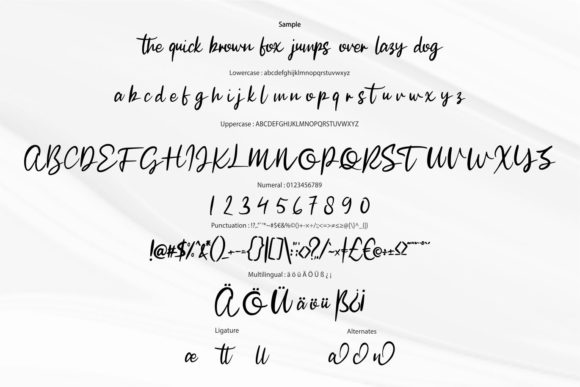 Sample
the quick brown fox jumps over lazy dog
Lowercase : abcdefghijklmnopqrstuvwxyz
a b c d e f g h i j k l m n o p q r s t u v w x y z
Uppercase : ABCDEFGHIJKLMNOPQRSTUVWXYZ
ABCDEFGHIJKLMNOPQRSTUVWXYZ
Numeral : 0123456789
1 2 3 4 5 6 7 8 9 0
Punctuation :
Multilingual : ä ö ü Ä Ö Ü ß ¿ ¡
Ä Ö Ü ä ö ü ß ¿ ¡
Ligature Alternates
æ tt ll a o n